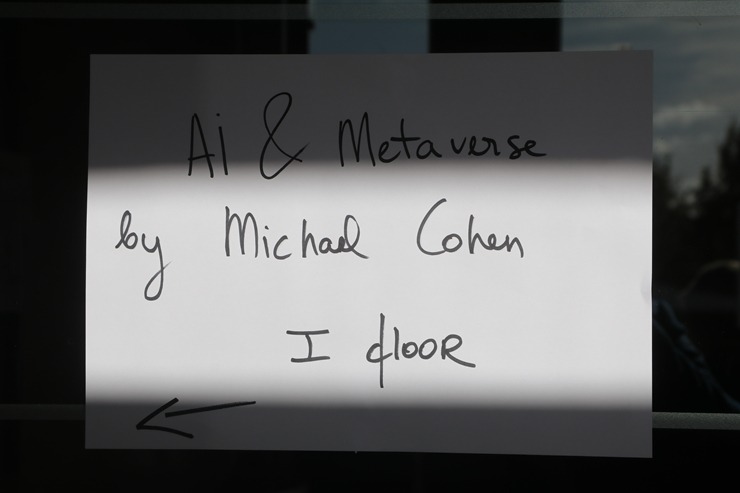 Ai & Metaverse
by Michael Cohen
I floor